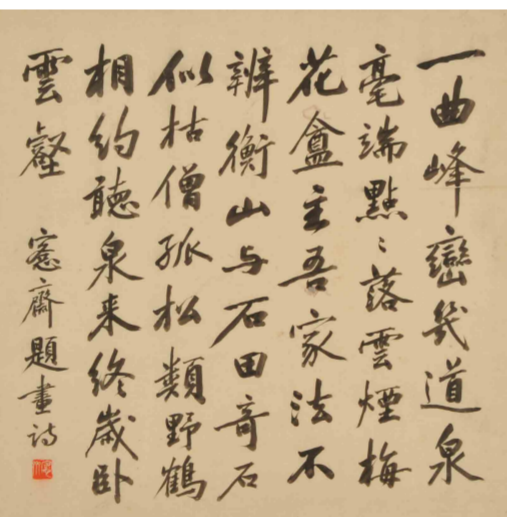 一曲峰巒幾道泉
毫端點〻落雲煙梅
花盦主吾家法不
辨衡山与石田奇石
似枯僧孤松類野鶴
相約聽泉来終歲卧
雲壑
愙齋題畫詩